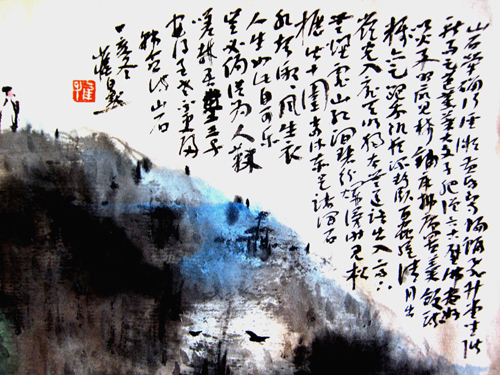 山石荦确行径微黄昏到寺蝙蝠飞升堂坐阶
新雨足芭蕉叶大支子肥僧言古壁佛画好
以火来照所见稀铺床拂席置羹饭疏
粝亦足饱我饥夜深静卧百虫绝清月出
岭光入扉天明独去无道路出入高下
穷烟霏山红涧碧纷烂漫时见松
枥皆十围当流赤足踏涧石
水声激激风生衣
人生如此自可乐
岂必局束为人鞿
嗟哉吾党二三子
安得至老不更归
韩愈诗山石
冬
崔
崔